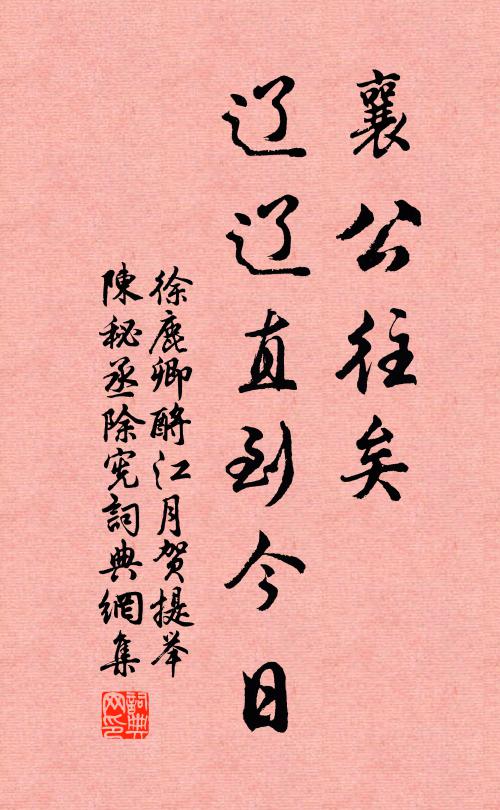 襄公往矣
辽辽直到今日
徐鹿卿酹江月贺提举
陳秘丞除宪詞典網集
詞典
网印